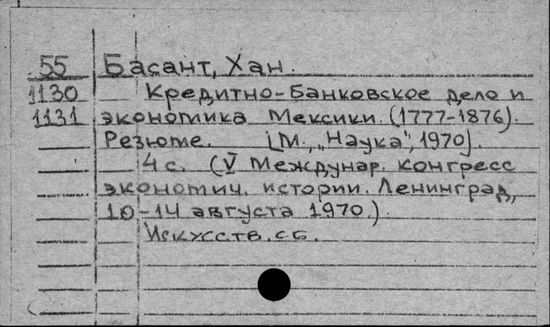 55 Басант, Хан.
1130 Кредитно-банковское дело и
1131 экономика Мексики. (1777-1876).
Резюме. [М., „Наука", 1970].
4 с. (V Междунар. конгресс
экономич. истории. Ленинград,
10-14 августа 1970.)
Искусств. сб.